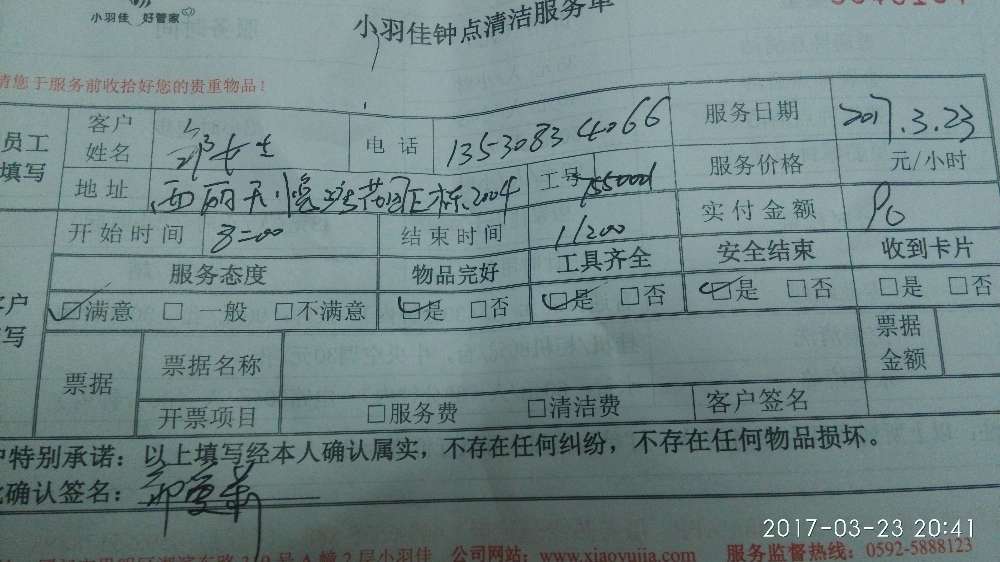 小羽佳 好管家
小羽佳钟点清洁服务单
请您于服务前收拾好您的贵重物品！
员工填写 客户姓名 邓女士 电话 13530834066 服务日期 2017.3.23
地址 西丽天 2004 工号 服务价格 元/小时
开始时间 8:00 结束时间 11200 实付金额 90
服务态度 物品完好 工具齐全 安全结束 收到卡片
☑满意 □一般 □不满意 ☑是 □否 ☑是 □否 ☑是 □否 □是 □否
票据 票据名称 票据金额
开票项目 □服务费 □清洁费 客户签名
户特别承诺：以上填写经本人确认属实，不存在任何纠纷，不存在任何物品损坏。
此确认签名：
号A幢2层小羽佳 公司网站：www.xiaoyujia.com 服务监督热线：0592-5888123
2017-03-23 20:41